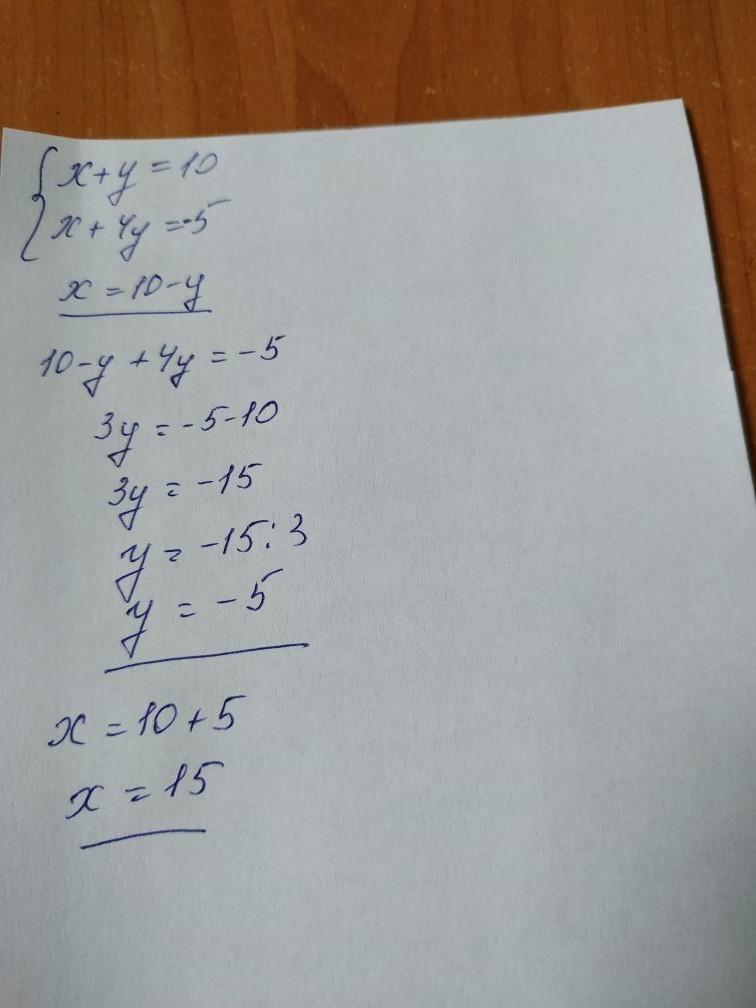 { x+y=10
x+4y=-5
x=10-y
10-y+4y=-5
3y=-5-10
3y=-15
y=-15:3
y=-5
x=10+5
x=15